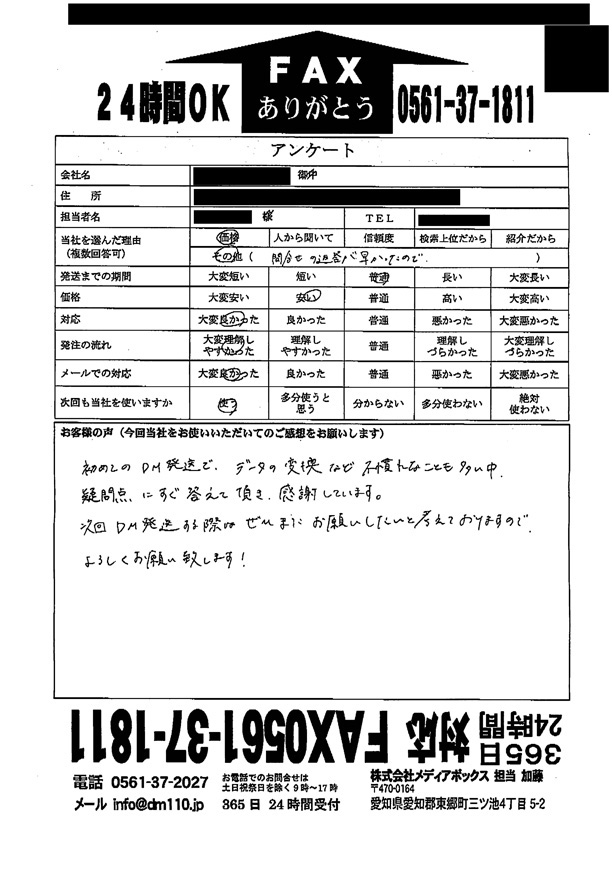 FAX
ありがとう
24時間OK
0561-37-1811
アンケート
会社名 御中
住 所
担当者名 様 TEL
当社を選んだ理由 (複数回答可) 価格 人から聞いて 信頼度 検索上位だから 紹介だから
その他( 問合せの返答が早かったので. )
発送までの期間 大変短い 短い 普通 長い 大変長い
価格 大変安い 安い 普通 高い 大変高い
対応 大変良かった 良かった 普通 悪かった 大変悪かった
発注の流れ 大変理解しやすかった 理解しやすかった 普通 理解しづらかった 大変理解しづらかった
メールでの対応 大変良かった 良かった 普通 悪かった 大変悪かった
次回も当社を使いますか 使う 多分使うと思う 分からない 多分使わない 絶対使わない
お客様の声(今回当社をお使いいただいてのご感想をお願いします)
初めてのDM発送で、データの変換など不慣れなことも多い中、
疑問点にすぐ答えて頂き、感謝しています。
次回DM発送する際はぜひまたお願いしたいと考えておりますので、
よろしくお願い致します!
365日
24時間
対応 FAX0561-37-1811
電話 0561-37-2027
メール info@dm110.jp
お電話でのお問合せは
土日祝祭日を除く9時~17時
365日 24時間受付
株式会社メディアボックス 担当 加藤
〒470-0164
愛知県愛知郡東郷町三ツ池4丁目5-2